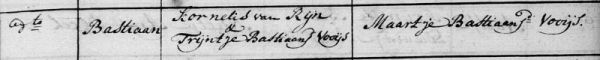 Kornelis van Rijn
Bastiaan & Maartje Bastiaans Vooijs.
Trijntje Bastiaans Vooijs